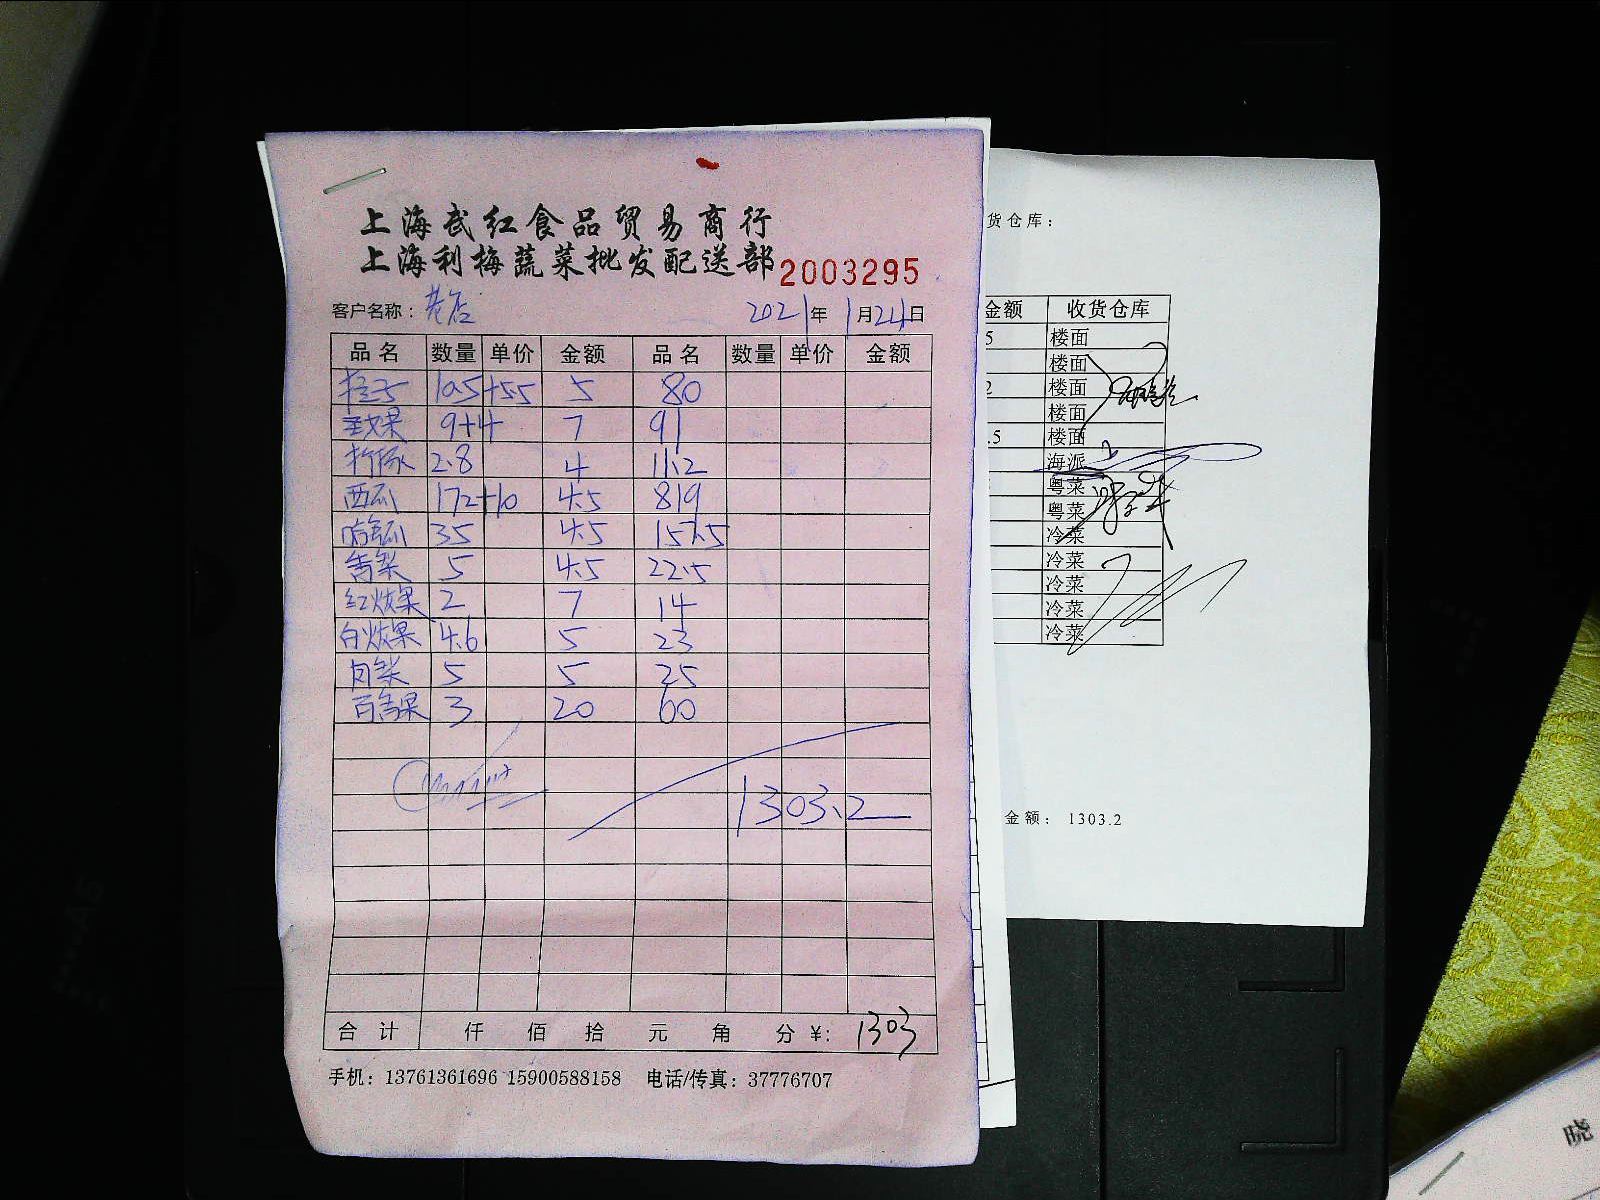 上海武红食品贸易商行
上海利梅蔬菜批发配送部 2003295
客户名称：老店 2021年1月24日
品名 数量 单价 金额 品名 数量 单价 金额
橙子 10.5+5.5 5 80
圣女果 9+4 7 91
柠檬 2.8 4 11.2
西瓜 172+10 4.5 819
哈密瓜 35 4.5 157.5
香梨 5 4.5 22.5
红火龙果 2 7 14
白火龙果 4.6 5 23
5 5 25
百香果 3 20 60
1303.2
合计 仟 佰 拾 元 角 分 ¥: 1303
手机：13761361696 15900588158 电话/传真：37776707
货仓库：
金额 收货仓库
5 楼面
楼面
2 楼面
楼面
.5 楼面
海派
粤菜
粤菜
冷菜
冷菜
冷菜
冷菜
冷菜
金额：1303.2